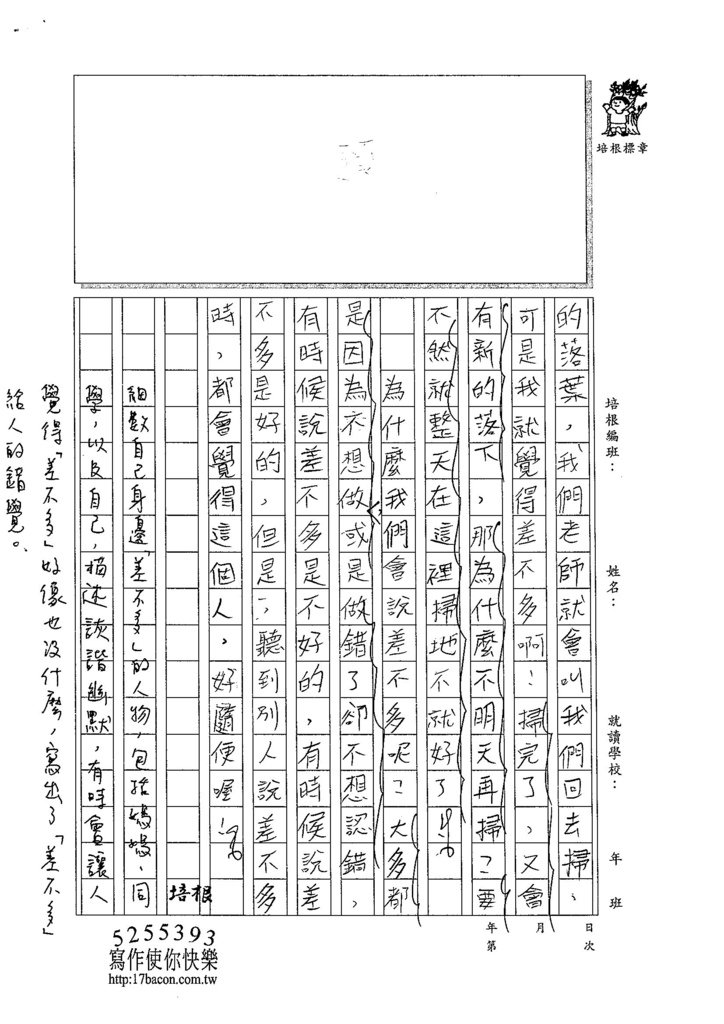 培根標章
培根編班：
姓名：
就讀學校：
年 班
日 次
月
年 第
的落葉，我們老師就會叫我們回去掃，
可是我就覺得差不多啊！掃完了，又會
有新的落下，那為什麼不明天再掃？要
不然就整天在這裡掃地不就好了
為什麼我們會說差不多呢？大多都
是因為不想做或是做錯了卻不想認錯，
有時候說差不多是不好的，有時候說差
不多是好的，但是，聽到別人說差不多
時，都會覺得這個人，好隨便喔！
培根
細數自己身邊「差不多」的人物，包括媽媽、同
學，以及自己，描述詼諧幽默，有時會讓人
覺得「差不多」好像也沒什麼，寫出了「差不多」
給人的錯覺。
5255393
寫作使你快樂
http:17bacon.com.tw